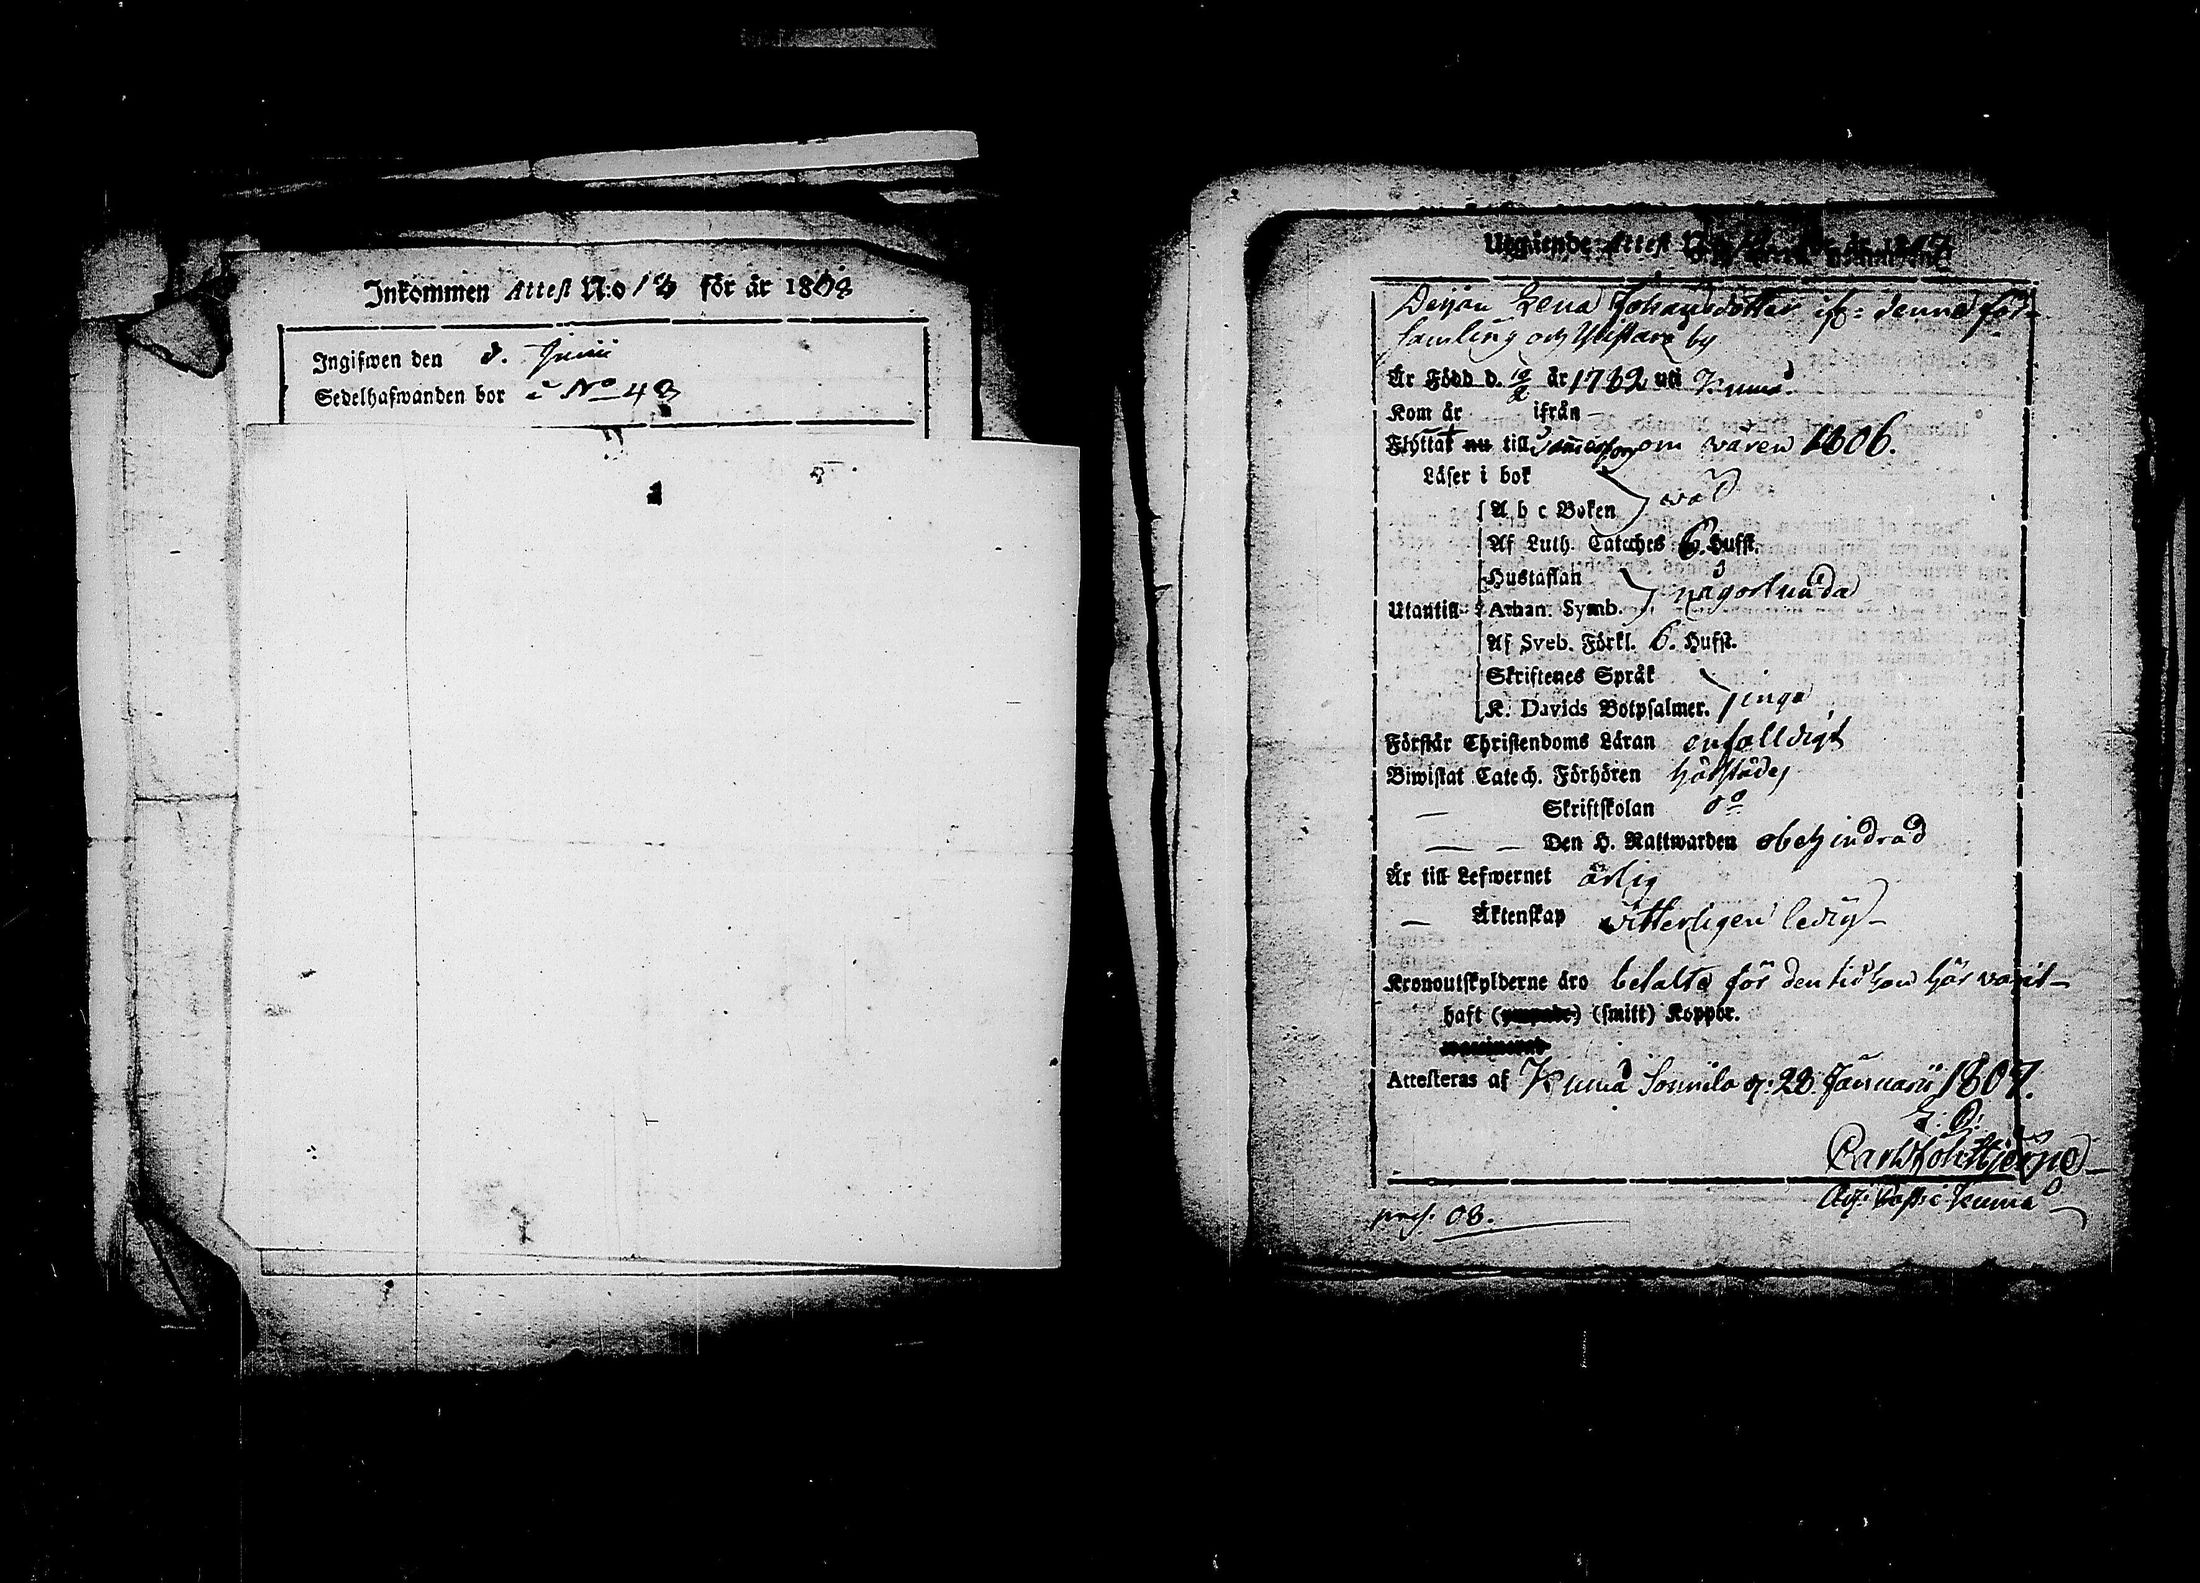 Inkommen Attest N:o 13 för år 1808
Ingifwen den d. Junii
Sedelhafwanden bor i No 43
Utgående Attest
Pigan Lena Johansdotter ifr: denna för-
samling och by
Är Född d. 19/2 år 1782 uti Kumo
Kom år ifrån
Flyttat nu till om våren 1806.
Läser i bok
A b c Boken wäl
Af Luth. Cateches 6. Hufst.
Hustaflan
Utantill Athan. Symb. någorlunda
Af Sveb. Förkl. 6. Hufst.
Skriftenes Språk
K. Davids Botpsalmer. inga
Förstår Christendoms Läran enfalldigt
Biwistat Catech. Förhören härstädes
— Skriftskolan do
— — Den H. Nattwarden obehindrad
Är till Lefwernet ärlig
— Äktenskap vitterligen ledig —
Kronoutskylderne äro betalte för den tid hon här varit —
haft (smitt) Koppor.
Attesteras af Kumo d. 28. Januarii 1807.
E: O:
Carl
Adj: Past: i Kumo
pres. 08.